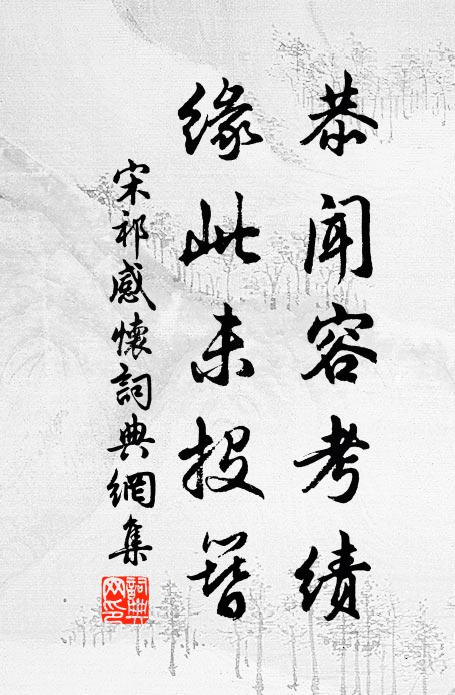 恭闻容考绩
緣此未投簪
宋祁感懷詞典網集
詞典網印